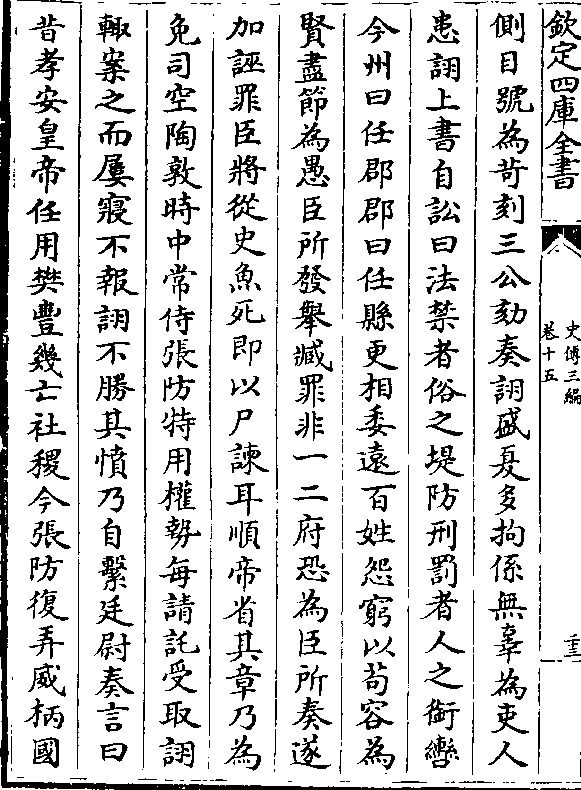 欽定四庫全書
史傳三編
卷十五
側目號為苛刻三公劾奏詡盛夏多拘係無辜為吏人
患詡上書自訟曰法禁者俗之堤防刑罰者人之銜轡
今州曰任郡郡曰任縣更相委遠百姓怨窮以苟容為
賢盡節為愚臣所發舉臧罪非一二府恐為臣所奏遂
加誣罪臣將從史魚死即以尸諫耳順帝省其章乃為
免司空陶敦時中常侍張防特用權勢每請託受取詡
輙案之而屢寢不報詡不勝其憤乃自繫廷尉奏言曰
昔孝安皇帝任用樊豐幾亡社稷今張防復弄威柄國